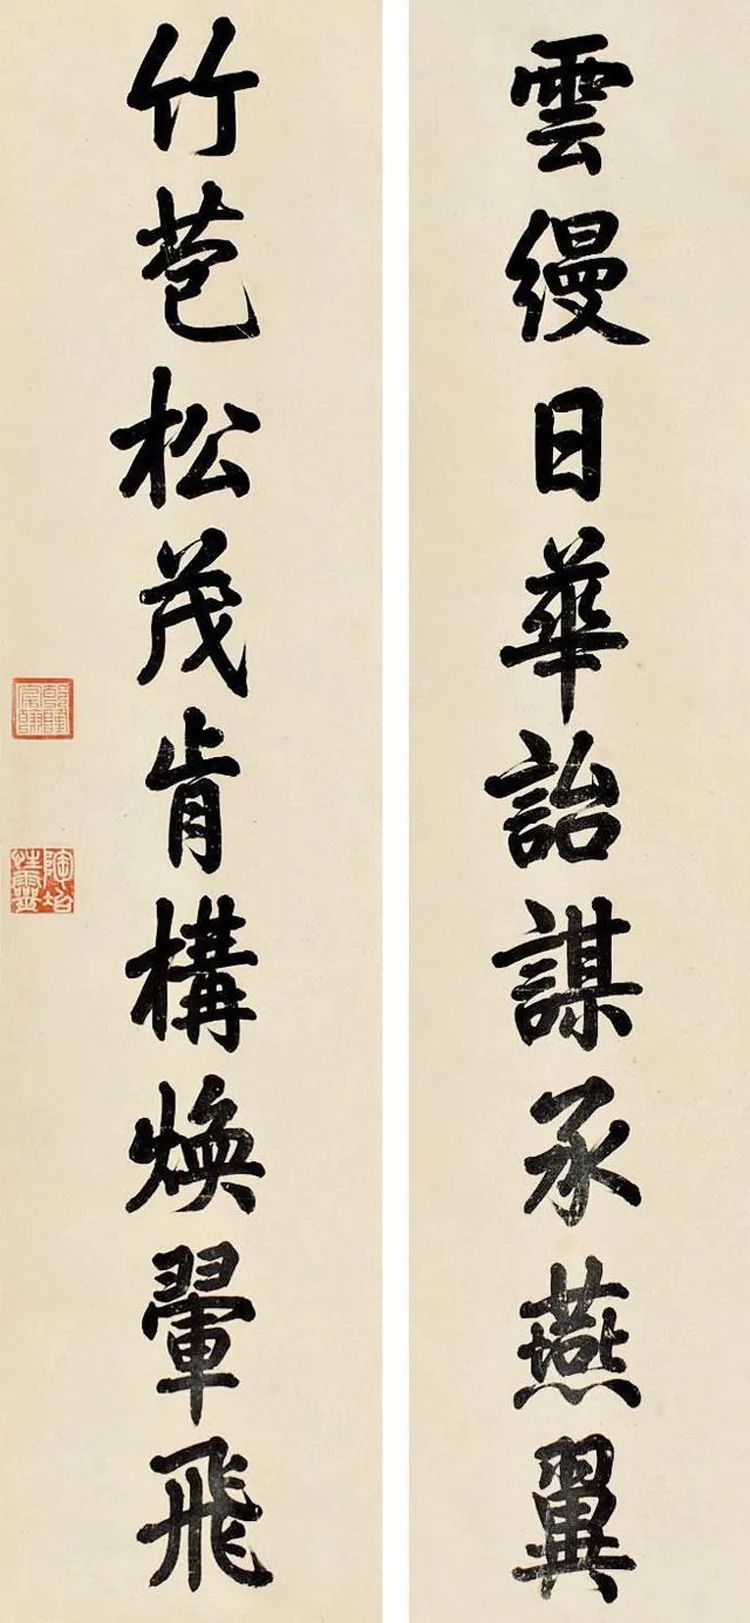 雲縵日華詒謀承燕翼
竹苞松茂肯構煥翬飛
陶冶性靈